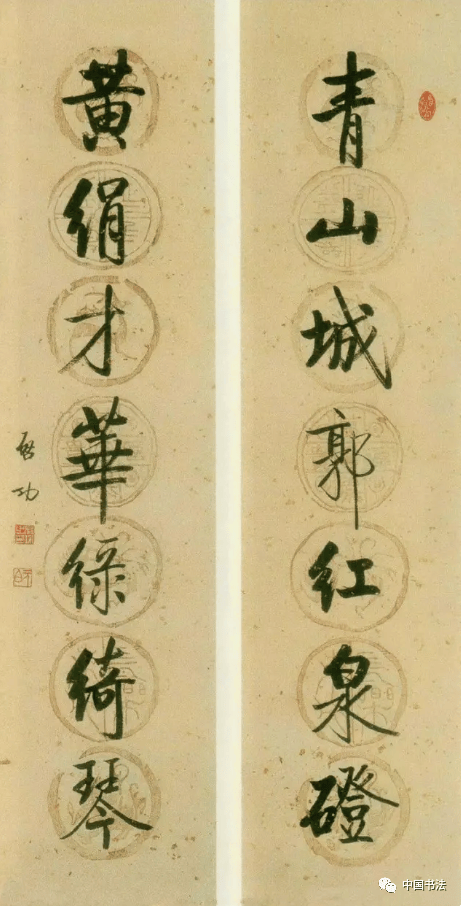 青山城郭红泉磴
黄絹才華绿綺琴
启功
中国书法